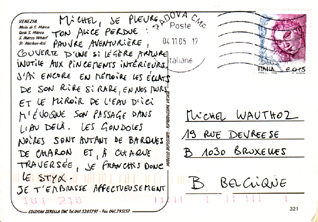 VENEZIA
Molo di S. Marco
MICHEL, JE PLEURE
TON ALICE PERDUE :
PAUVRE AVENTURIÈRE,
COUVERTE D'UNE SI LÉGÈRE ARMURE
INUTILE AUX PINCEMENTS INTÉRIEURS.
J'AI ENCORE EN MÉMOIRE LES ÉCLATS
DE SON RIRE SI RARE, EN NOS MURS
ET LE MIROIR DE L'EAU D'ICI
M'ÉVOQUE SON PASSAGE DANS
L'AU DELÀ. LES GONDOLES
NOIRES SONT AUTANT DE BARQUES
DE CHARON ET, À CHAQUE
TRAVERSÉE, JE FRANCHIS DONC
LE STYX.
JE T'EMBRASSE AFFECTUEUSEMENT
PADOVA CMP
Poste
04.11.05 - 17
Italiane
ITALIA € 0,45
MICHEL WAUTHOZ
19 RUE DEVREESE
B 1030 BRUXELLES
B BELGIQUE
221